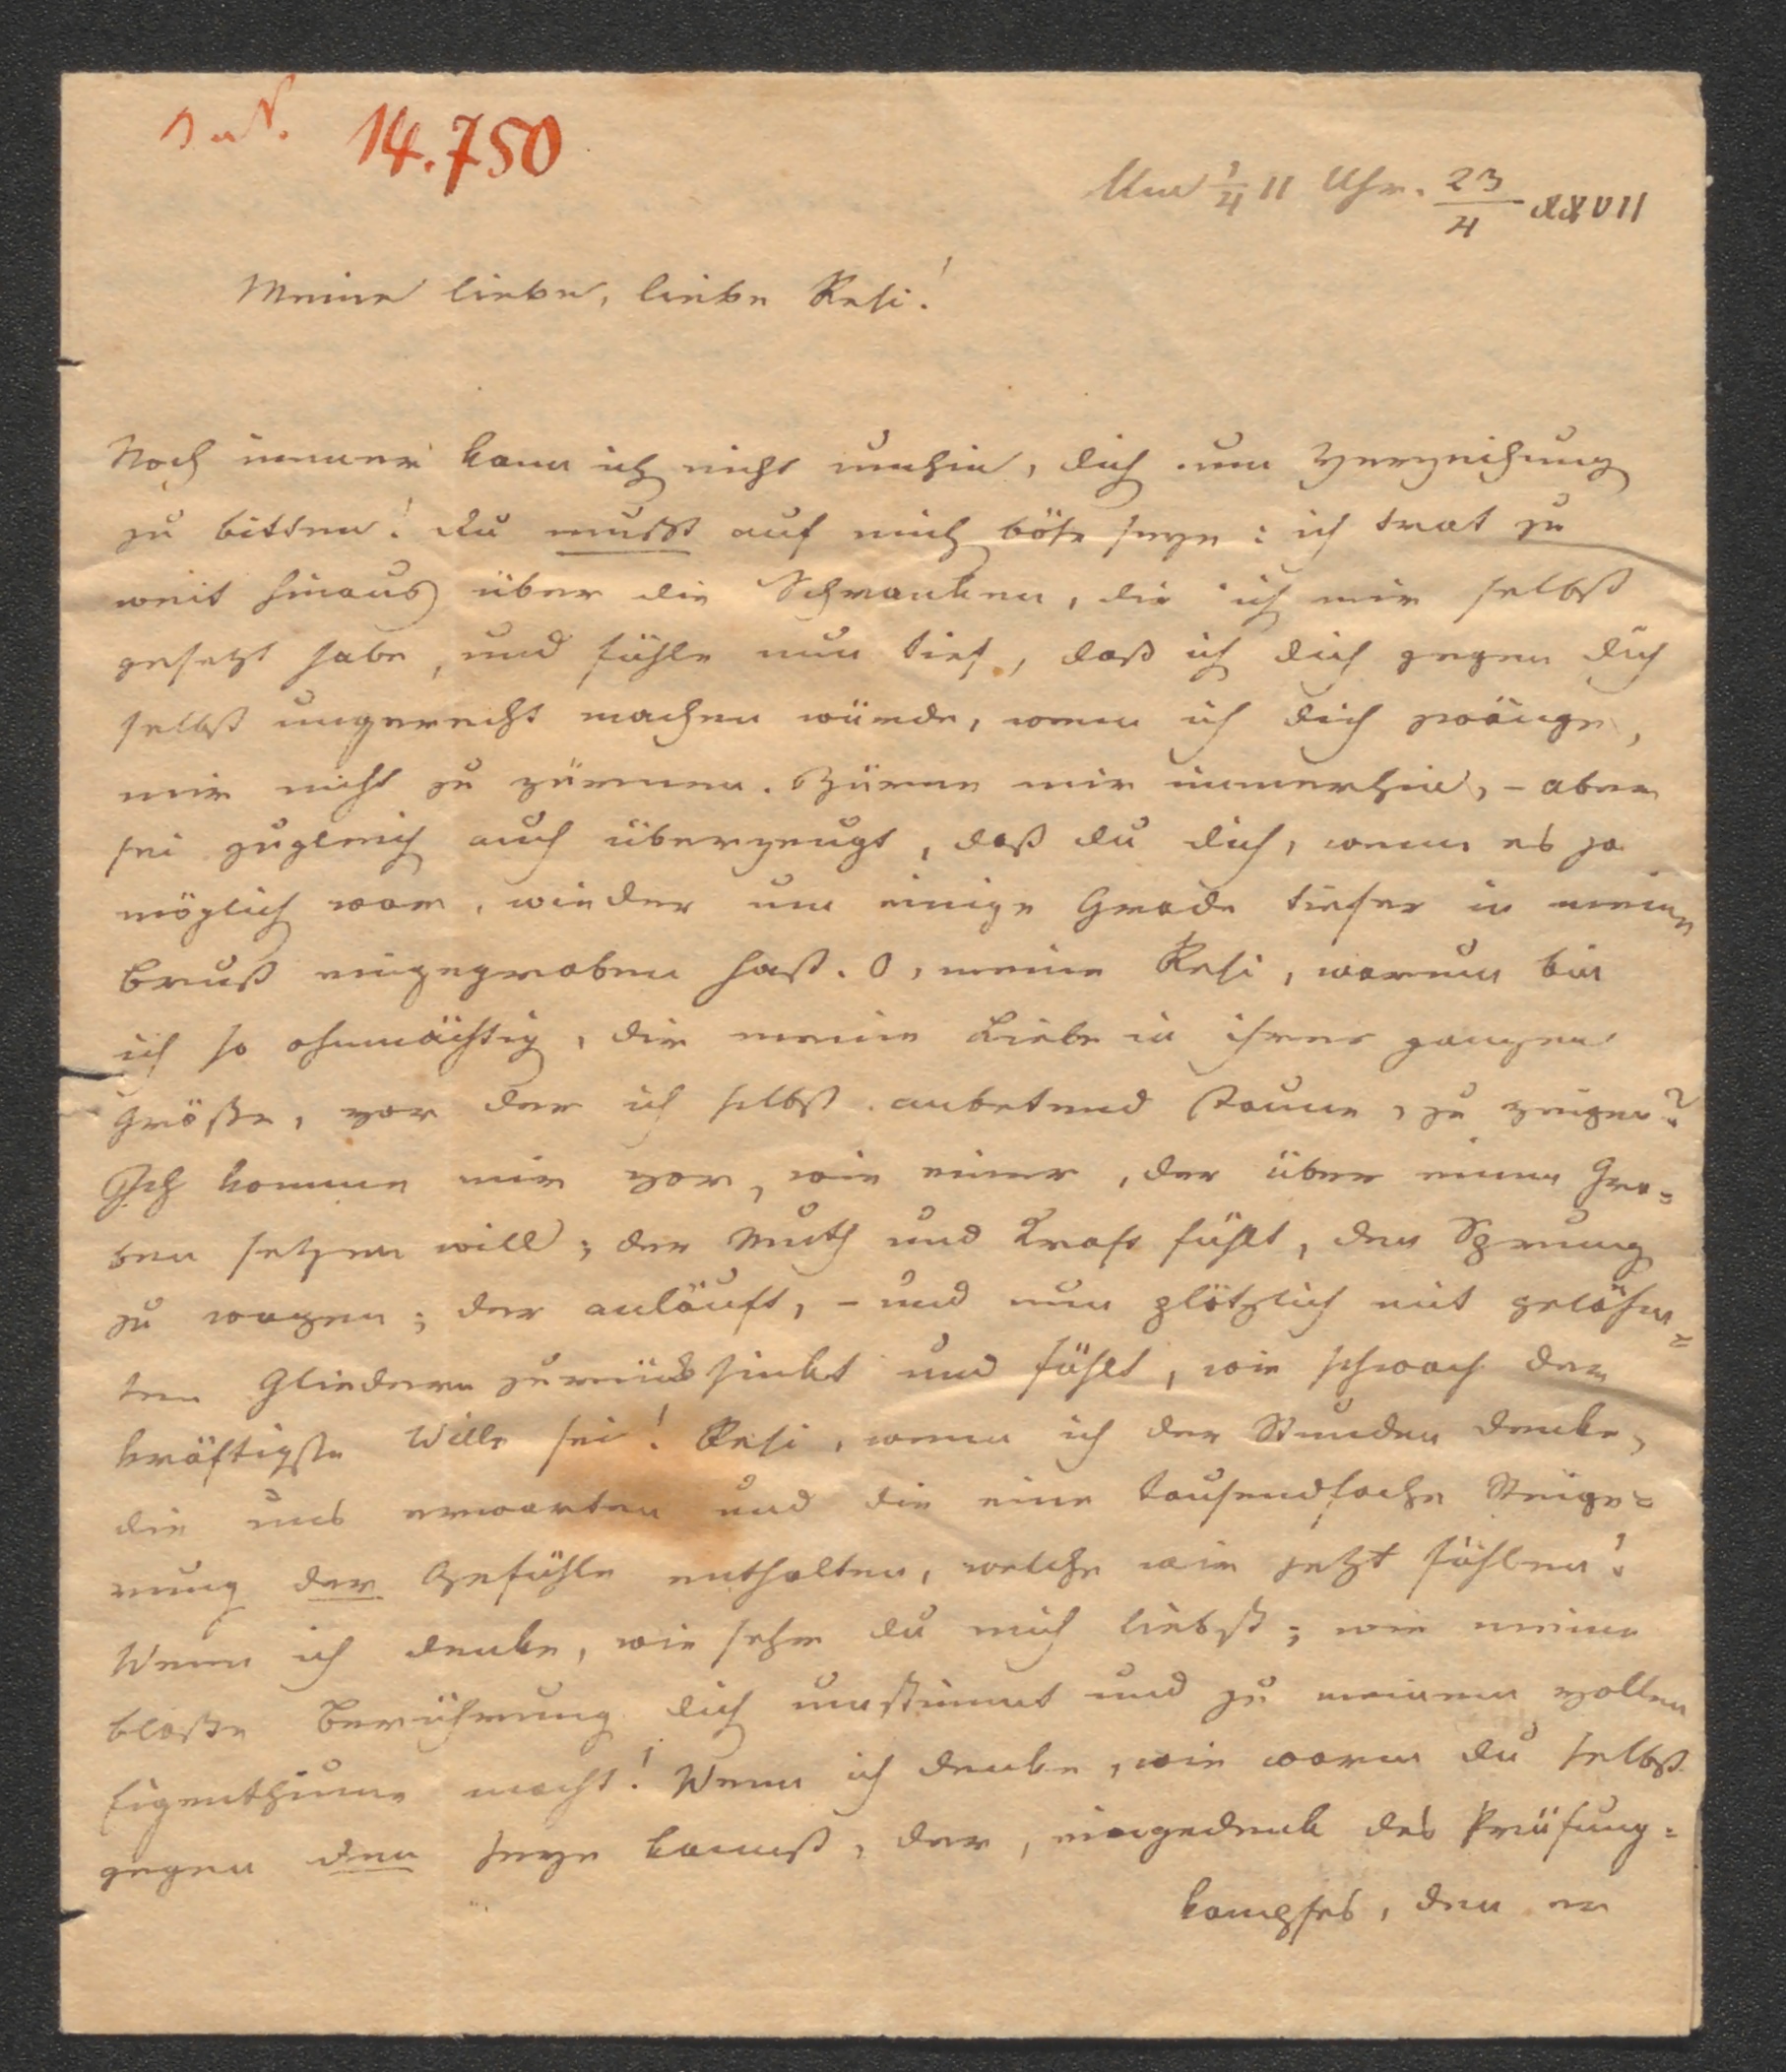 I. N. 14.750
Um 1/4 11 Uhr. 23/4 XXVII
Meine liebe, liebe Resi!
Noch immer kann ich nicht umhin, dich um Verzeihung
zu bitten! du mußt auf mich böse seyn: ich trat zu
weit hinaus über die Schranken, die ich mir selbst
gesetzt habe, und fühle nun tief, daß ich dich gegen dich
selbst ungerecht machen würde, wenn ich dich zwänge,
mir nicht zu zürnen. Zürne mir immerhin, – aber
sei zugleich auch überzeugt, daß du dich, wenn es ja
möglich war, wieder um einige Grade tiefer in meine
Brust eingegraben hast. O, meine Resi, warum bin
ich so ohnmächtig, dir meine Liebe in ihrer ganzen
Größe, vor der ich selbst anbetend staune, zu zeigen?
Ich komme mir vor, wie einer, der über einen Gra=
ben setzen will; der Muth und Kraft fühlt, den Sprung
zu wagen; der anläuft, – und nun plötzlich mit gelähm=
ten Gliedern zurücksinkt und fühlt, wie schwach der
kräftigste Wille sei! Resi, wenn ich der Stunden denke,
die uns erwarten und die eine tausendfache Steige=
rung der Gefühle enthalten, welche wir jetzt fühlen!
Wenn ich denke, wie sehr du mich liebst; wie meine
bloße Berührung dich umstimmt und zu meinem vollen
Eigenthume macht! Wenn ich denke, wie warm du selbst
gegen den seyn kannst, der, eingedenk des Prüfung=
kampfes, den er